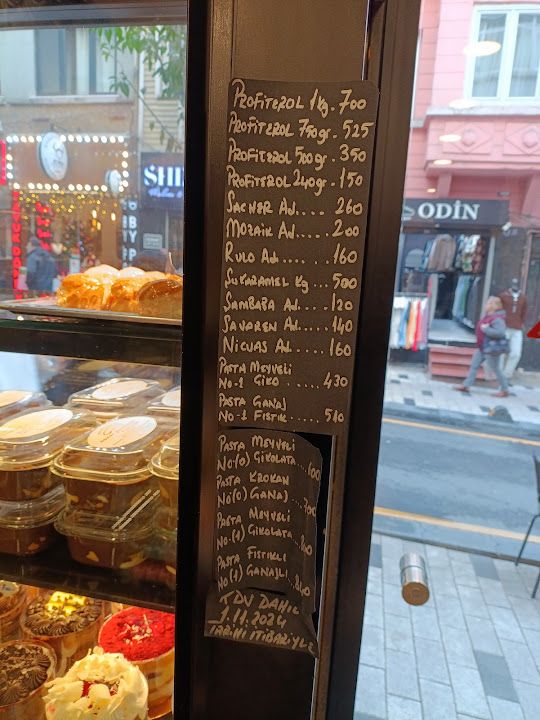 PROFİTEROL 1 kg. 700
PROFİTEROL 750gr. 525
PROFİTEROL 500gr. 350
PROFİTEROL 240gr. 150
SACHER Ad..... 260
MOZAİK Ad... 200
RULO Ad..... 160
SUKARAMEL Kg... 500
SAMBABA Ad...120
SAVAREN Ad.... 140
NICUAS Ad.... 160
PASTA MEYVELİ
NO-1 ÇİKO...... 430
PASTA GANAJ
NO-1 FISTIK..... 510
PASTA MEYVELİ
NO(0) ÇİKOLATA...
PASTA KROKAN
NO(0) GANAJ....700
PASTA MEYVELİ
NO.(1) ÇİKOLATA..
PASTA FISTIKLI
NO(1) GANAJLI..
KDV DAHİL
1.11.2024
TARİHİ İTİBARİYLE
ODİN